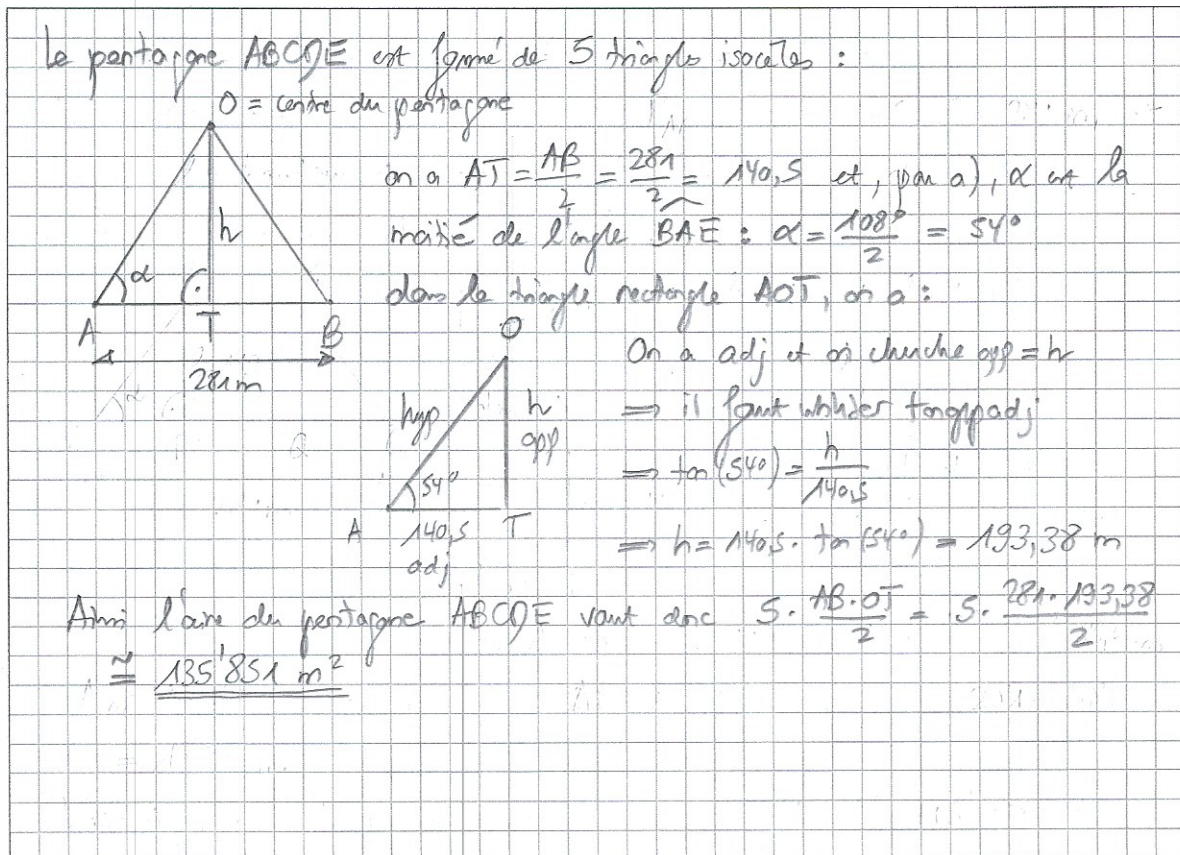 Le pentagone ABCDE est formé de 5 triangles isocèles :
O = centre du pentagone
on a AT = AB/2 = 281/2 = 140,5 et, par a), α est la
moitié de l'angle BAE : α = 108°/2 = 54°
dans le triangle rectangle AOT, on a :
h
α
A T B
281 m
O
hyp
h
opp
54°
A 140,5 T
adj
On a adj et on cherche opp = h
⇒ il faut utiliser tangoppadj
⇒ tan(54°) = h/140,5
⇒ h = 140,5 · tan(54°) = 193,38 m
Ainsi l'aire du pentagone ABCDE vaut donc 5 · AB·OT/2 = 5 · 281·193,38/2
≅ 135'851 m²